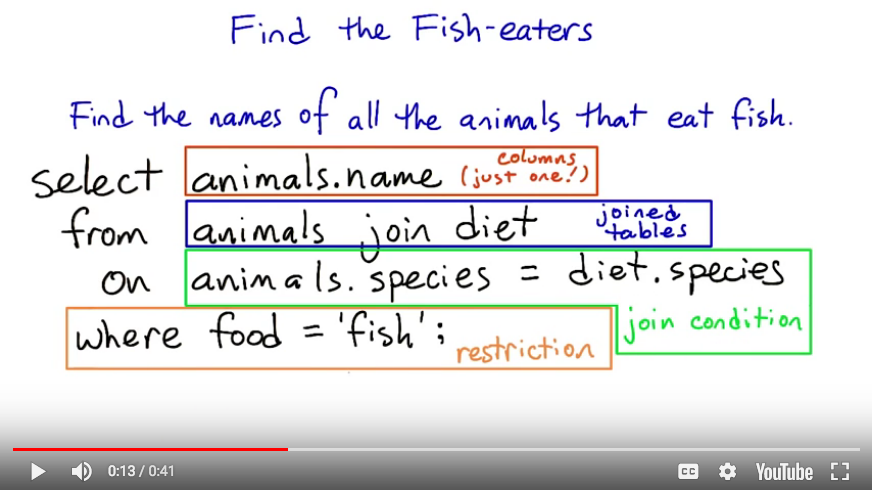 Find the Fish-eaters
Find the names of all the animals that eat fish.
select animals.name columns (just one!)
from animals join diet joined tables
on animals.species = diet.species
join condition
where food = 'fish';
restriction
0:13 / 0:41
CC
YouTube